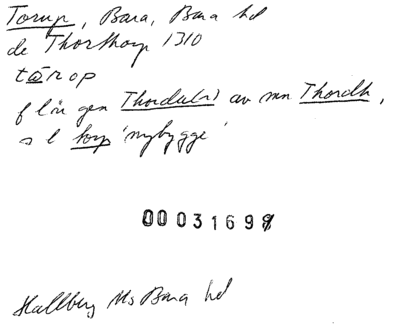 Torup, Bara, Bara hd
de Thorthorp 1310
tårop
f l är gen Thordu(r) av mn Thordh,
s l torp 'nybygge'
00031698
Hallberg Ms Bara hd